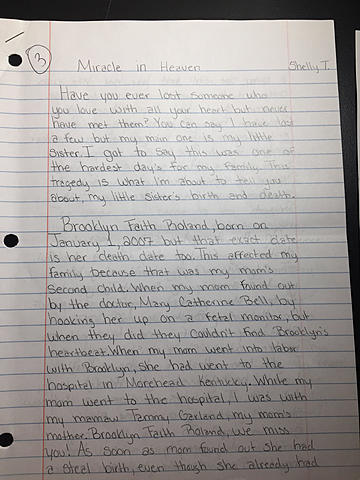 3
Miracle in Heaven Shelly T.
Have you ever lost someone who
you love with all your heart but never
have met them? You can say I have lost
a few but my main one is my little
sister. I got to say this was one of
the hardest day's for my family. This
tragedy is what I'm about to tell you
about, my little sister's birth and death.
Brooklyn Faith Roland, born on
January 1, 2007 but that exact date
is her death date too. This affected my
family because that was my mom's
second child. When my mom found out
by the doctor, Mary Catherine Bell, by
hooking her up on a fetal monitor, but
when they did they couldn't find Brooklyn's
heartbeat. When my mom went into labor
with Brooklyn, she had went to the
hospital in Morehead Kentucky. While my
mom went to the hospital, I was with
my mamaw Tammy Garland, my mom's
mother. Brooklyn Faith Roland, we miss
you! As soon as mom found out she had
a steal birth, even though she already had